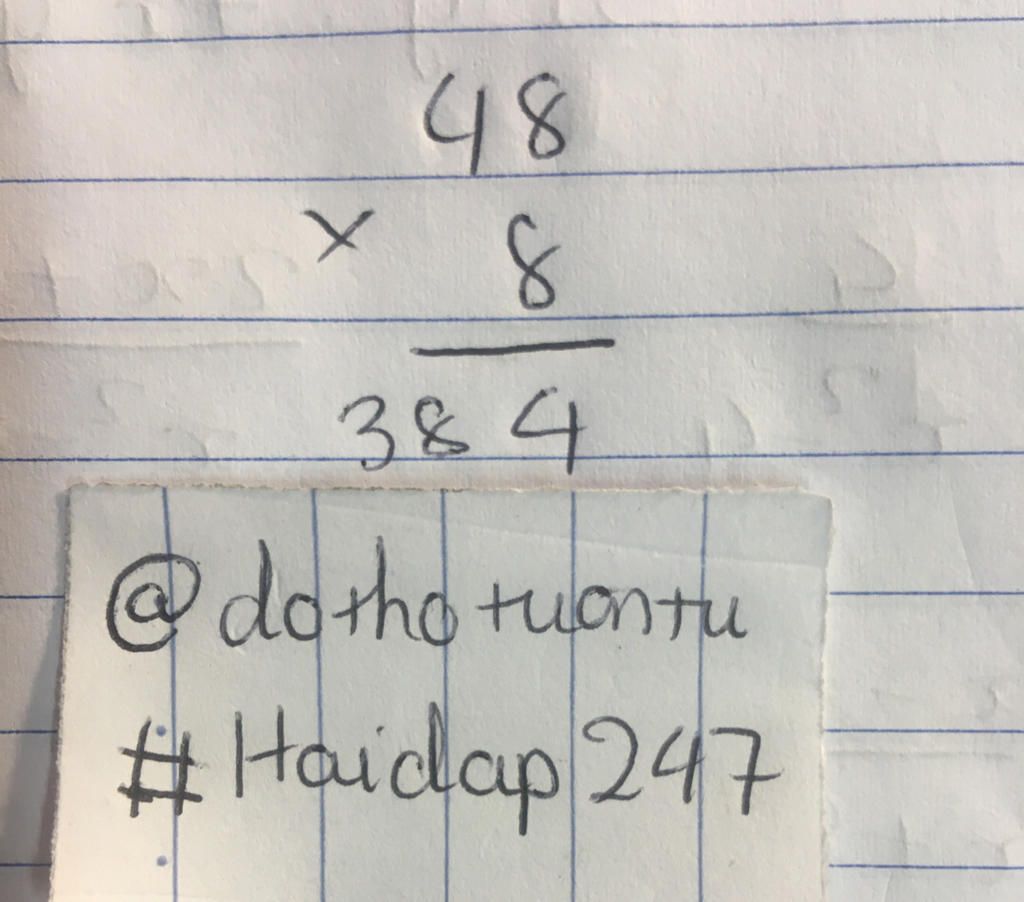 48
× 8
384
@dothotuantu
#Haidap247